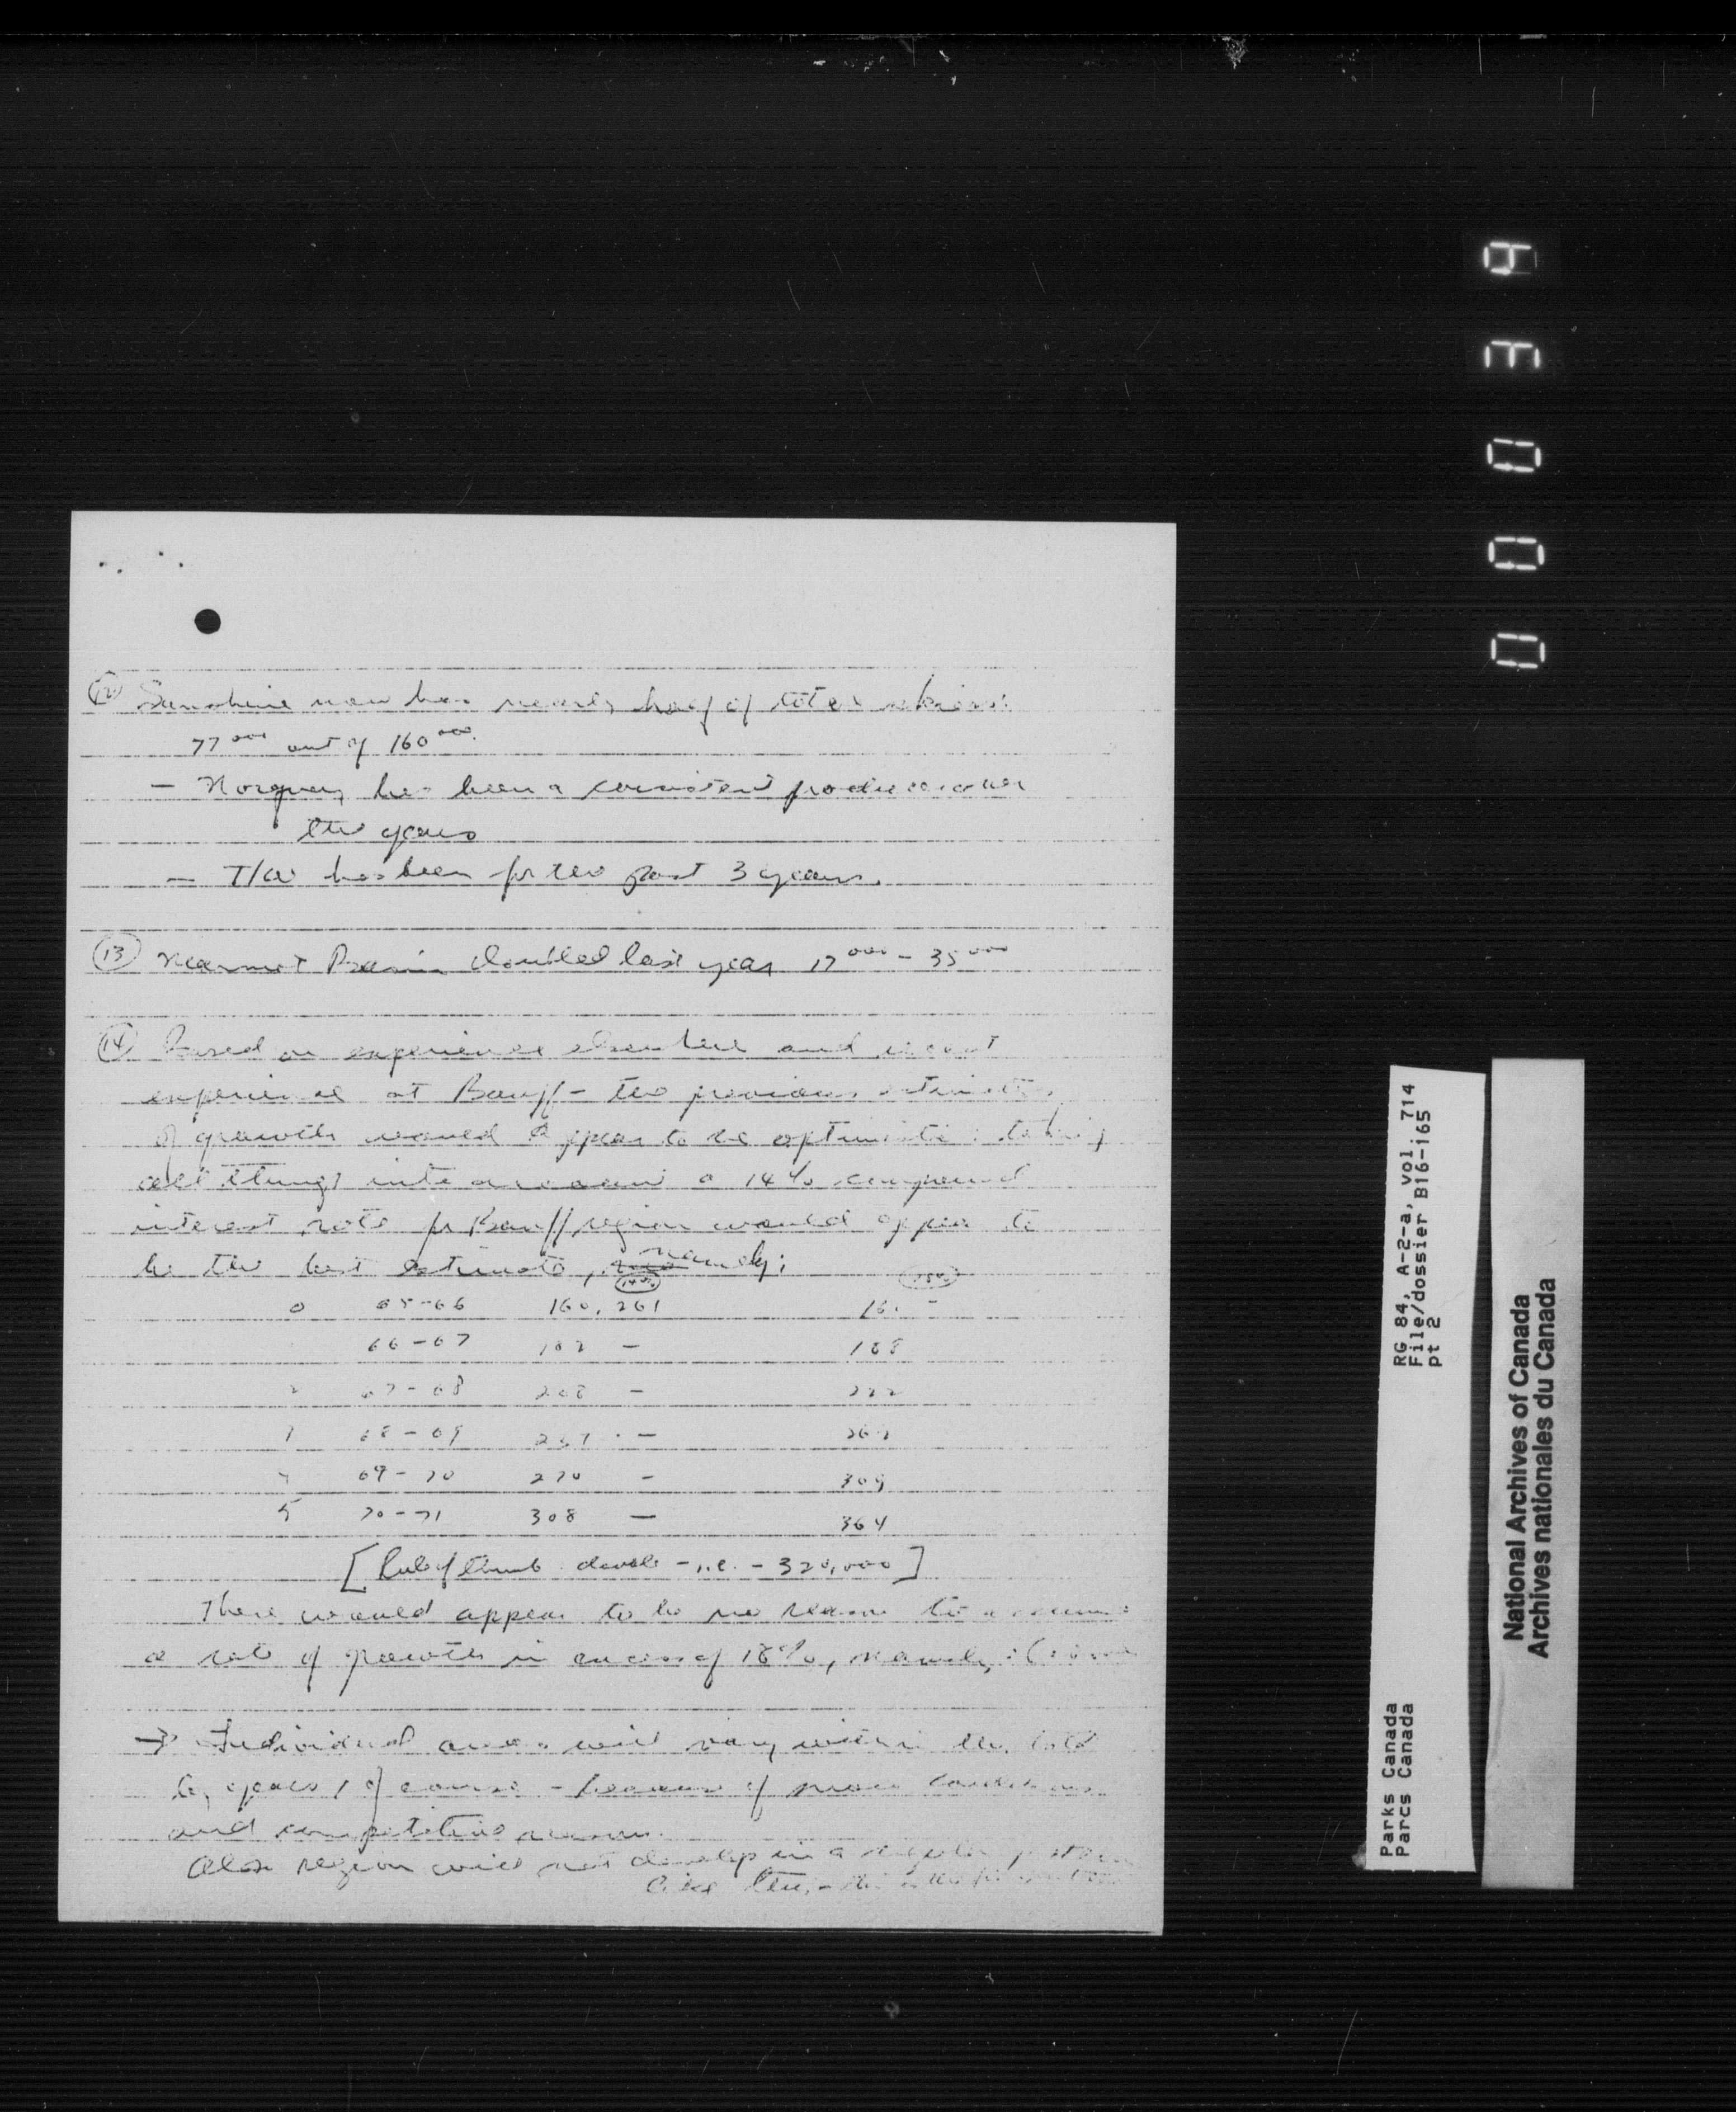 (12) Sunshine now has nearly half of total skiers:
77000 out of 160000.
- Norquay has been a consistent producer over
the years
- T/W has been for the past 3 years.
(13) Marmot Basin doubled last year 17000 - 35000
(14) Based on experience elsewhere and recent
experience at Banff - the previous estimates
of growth would appear to be optimistic: taking
all things into account a 14% compound
interest rate for Banff region would appear to
be the best estimate, namely:
(14%) (18%)
0 65-66 160,261 160 -
66-67 182 - 188
2 67-68 208 - 222
68-69 237 - 262
69-70 270 - 309
5 70-71 308 - 364
[Rule of thumb double - i.e. - 320,000]
There would appear to be no reason to assume
a rate of growth in excess of 18%, namely:
→ Individual areas will vary within the total
by years, of course - because of snow conditions
and competitive reasons.
Also region will not develop in a regular pattern
like this -
00039
RG 84, A-2-a, vol. 714
File/dossier B16-165
pt 2
Parks Canada
Parcs Canada
National Archives of Canada
Archives nationales du Canada